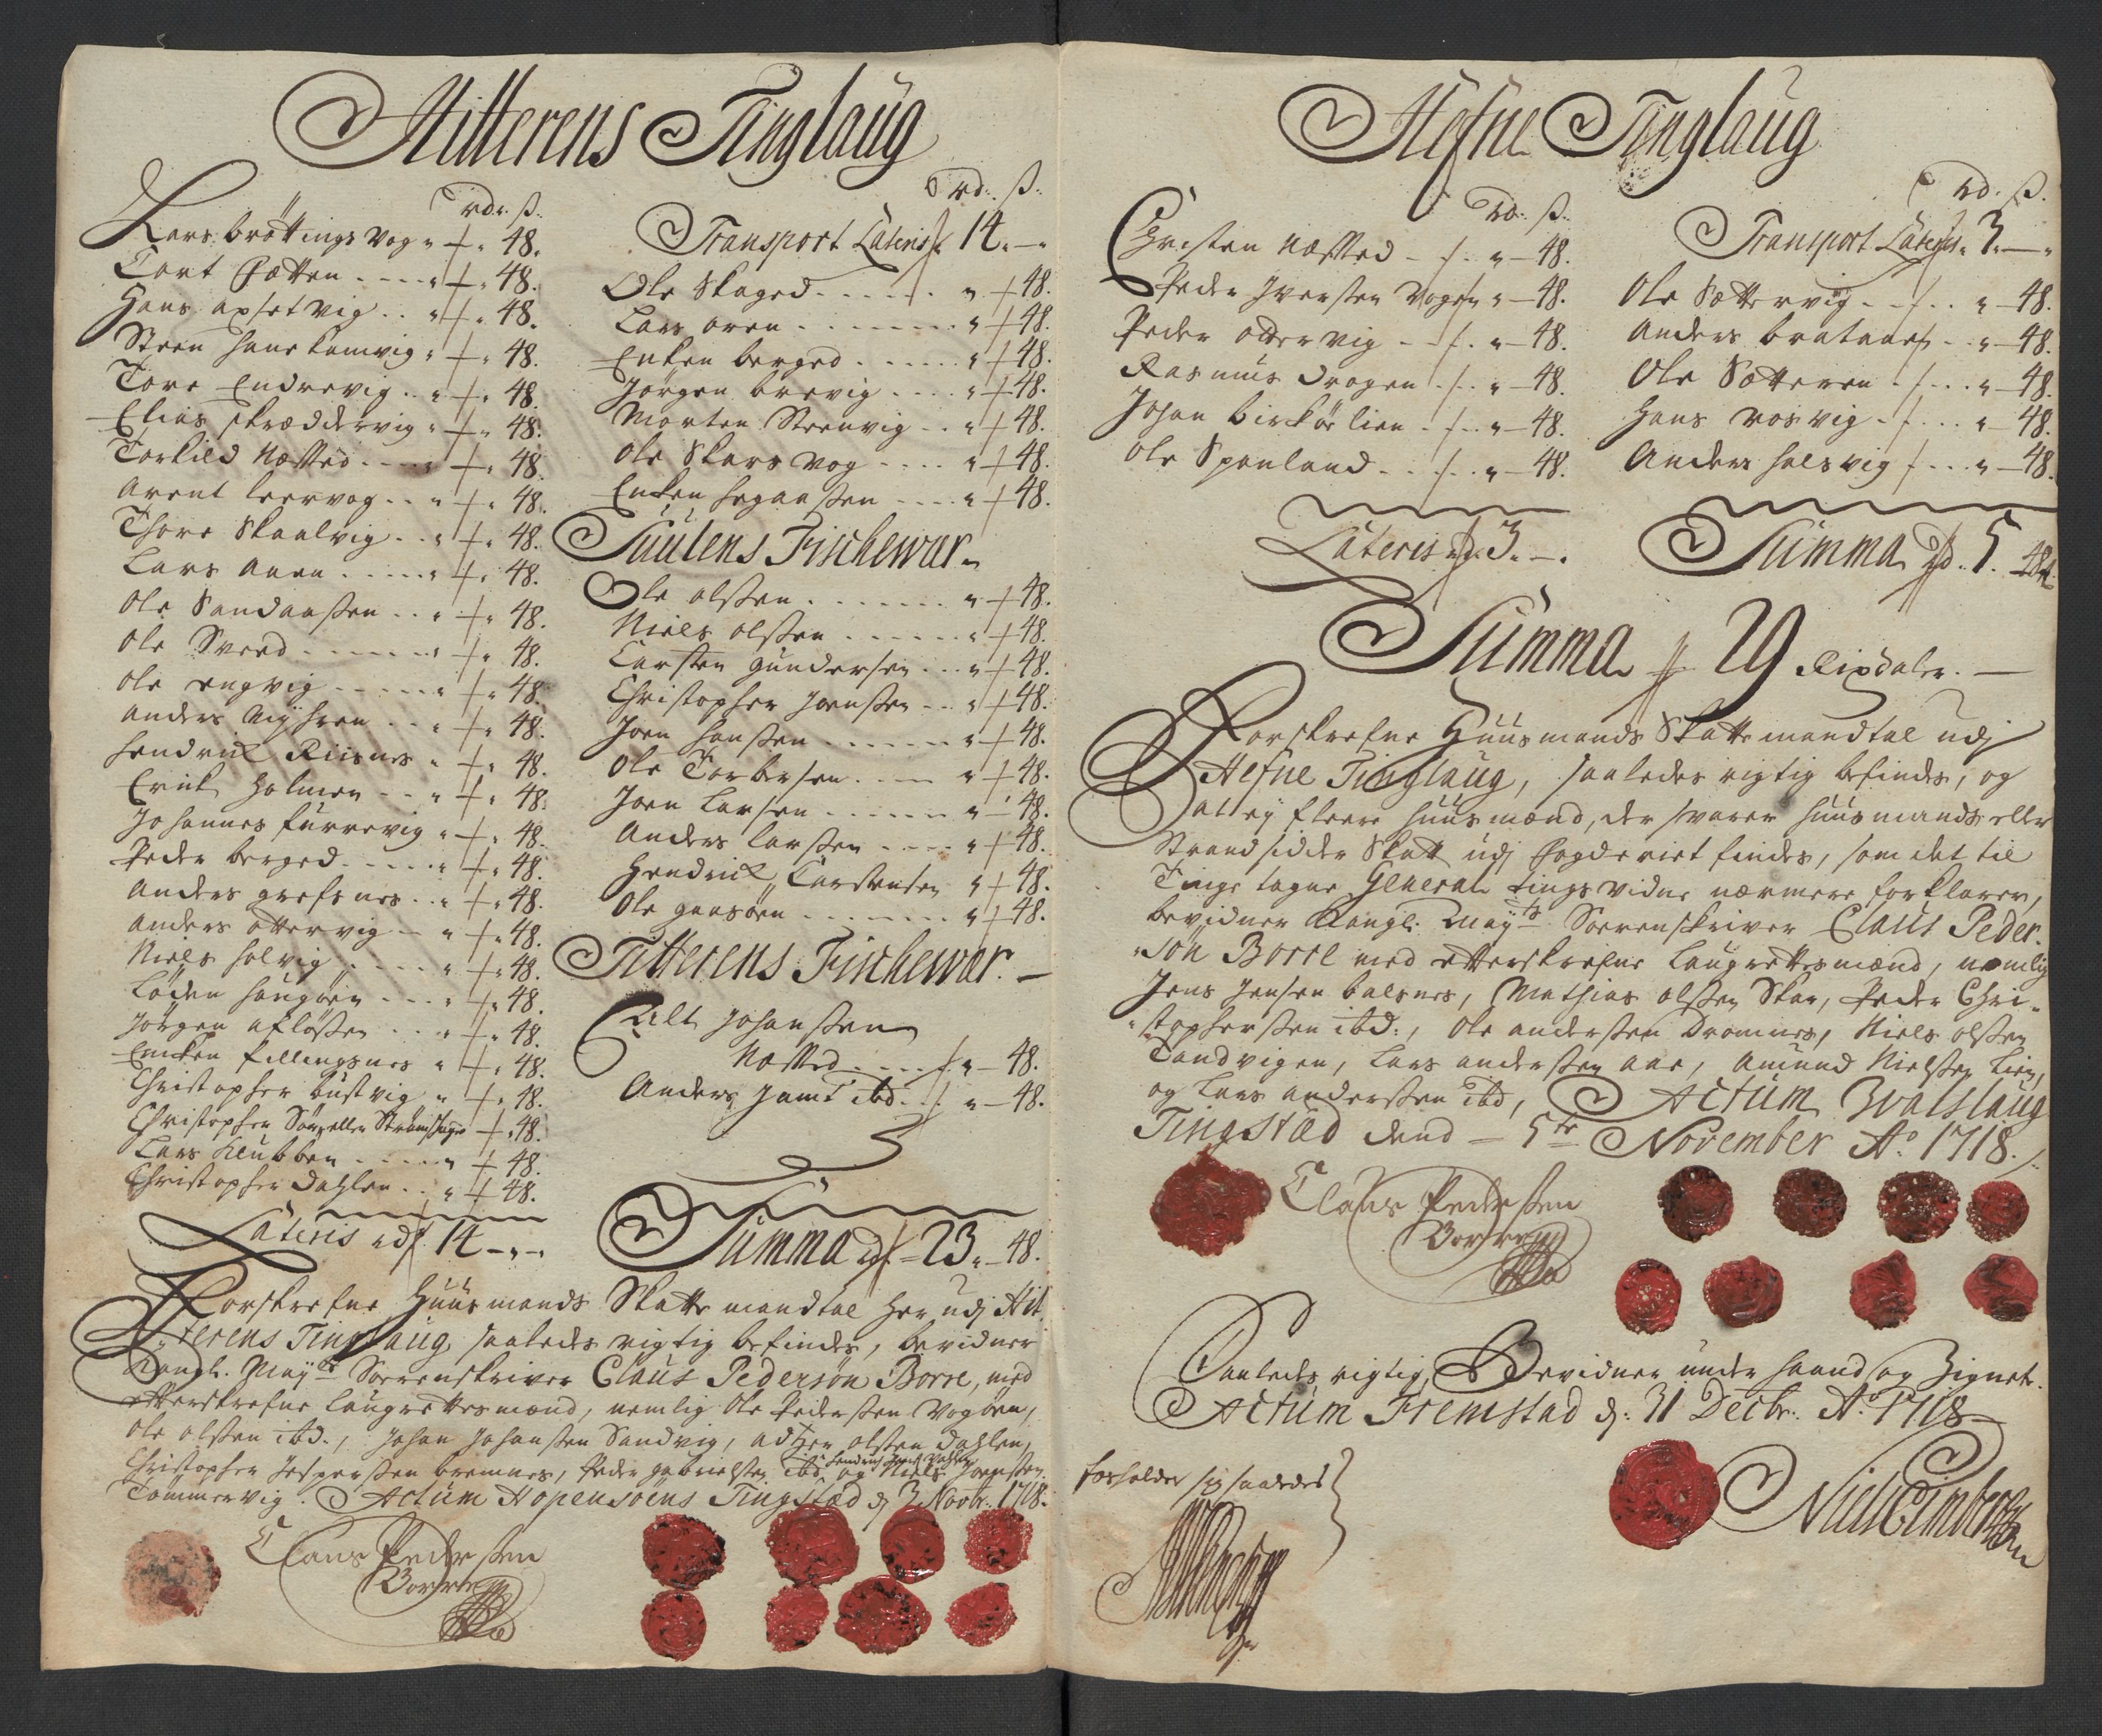 Hitterens Tinglaug
rdr. ß.
Lars bröttingsvog " 48.
Tort Fætten " 48.
Hans axsetvig " 48.
Steen hans kamvig " 48.
Tore Endrevig " 48.
Elias skræddervig " 48.
Torkild Næsset " 48.
Arent leervog " 48.
Thore Skaalvig " 48.
Lars Aune " 48.
Ole Sandaassen " 48.
Ole Sveed " 48.
Ole engvig " 48.
Anders " 48.
Hendrich Riisnes " 48.
Erich Holmen " 48.
Johannes furrevig " 48.
Peder berged " 48.
Anders grefsnes " 48.
Anders ottervig " 48.
Niels holvig " 48.
Loden haugöen " 48.
Jörgen aflössen " 48.
Encken fillingsnes " 48.
Christopher bustvig " 48.
Christopher 48.
Lars Klubben " 48.
Christopher Dahlen " 48.
Lateris rd 14 - " -
rd. ß.
Transport Lateris 14. -
Ole Skaged " 48.
Lars oren " 48.
Enken berged " 48.
Jörgen brevig " 48.
Morten Steenvig " 48.
Ole Skarsvog " 48.
Enken hegaassen " 48.
Suulens Fischewær
Ole olssen " 48.
Niels olssen " 48.
Carsten Gundersen " 48.
Christopher joenssen " 48.
Joen hanssen " 48.
Ole Torbersen " 48.
Joen Larsen " 48.
Anders larssen " 48.
Hendrich Carstensen " 48.
Ole gaasöen " 48.
Titterens Fischewær. -
Johanssen
Næsset " 48.
Anders Jamt ibd. " 48.
Summa rd 23 " 48.
Forskrefne Huusmands Skatte mandtal her udj Hit-
terens Tinglaug saaledes rigtig befindes, bevidner
Kongl. Mayts Sorrenskriver Claus Pedersøn Borre, med
efterskrefne laugrettesmænd, nemlig Ole Pederssen vogöen,
Ole olssen ibd., Johan Johanssen Sandvig, olssen Dahlen,
Christopher Jespersen bremnes, Peder gabrielssen ibd og Niels Joenssen
Tommervig. Actum Hopensöens Tingstæd d 3 Novbr. 1718.
Claus Pederssen
Borre
Hefne Tinglaug
rd. ß.
Christen Næsset " 48.
Peder Iverssen vogen " 48.
Peder ottervig " 48.
Rasmus Drogen " 48.
Johan birkör lien " 48.
Ole Spenland " 48.
Lateris rd 3. -
rd. ß.
Transport Lateris. 3. -
Ole Sættervig " 48.
Anders brataas " 48.
Ole Sætteren " 48.
Hans rosvig " 48.
Anders halsvig " 48.
Summa rd. 5. 48.
Summa 29 Rixdaler. -
Forskrefne Huusmands Skatte mandtal udj
Hefne Tinglaug, saaledes rigtig befindes, og
att ey fleere huusmænd, der svarer huusmands eller
Strandsidder Skatt udj fogderiet findes, som det til
Tinge tagne General tings vidne nærmere forklarer,
bevidner Kongl. Mayts Sorrenskriver Claus Peder-
søn Borre med efterskrefne laugrettesmænd, nemlig
Jens Jensen balsnes, Mathias olssen Skar, Peder Chri-
stopherssen ibd., Ole anderssen Dromnes, Niels olssen
Tandvigen, Lars anderssen aae, Amund Nielssen Lien,
og Lars anderssen ibd, Actum Walslaug
Tingstæd dend 5te November Ao. 1718.
Claus Pederssen
Borre
Saaledes rigtig, Bevidner under haand og Zignete.
Actum Fremstad d: 31 Decbr. Ao 1718
forholder sig saaledes